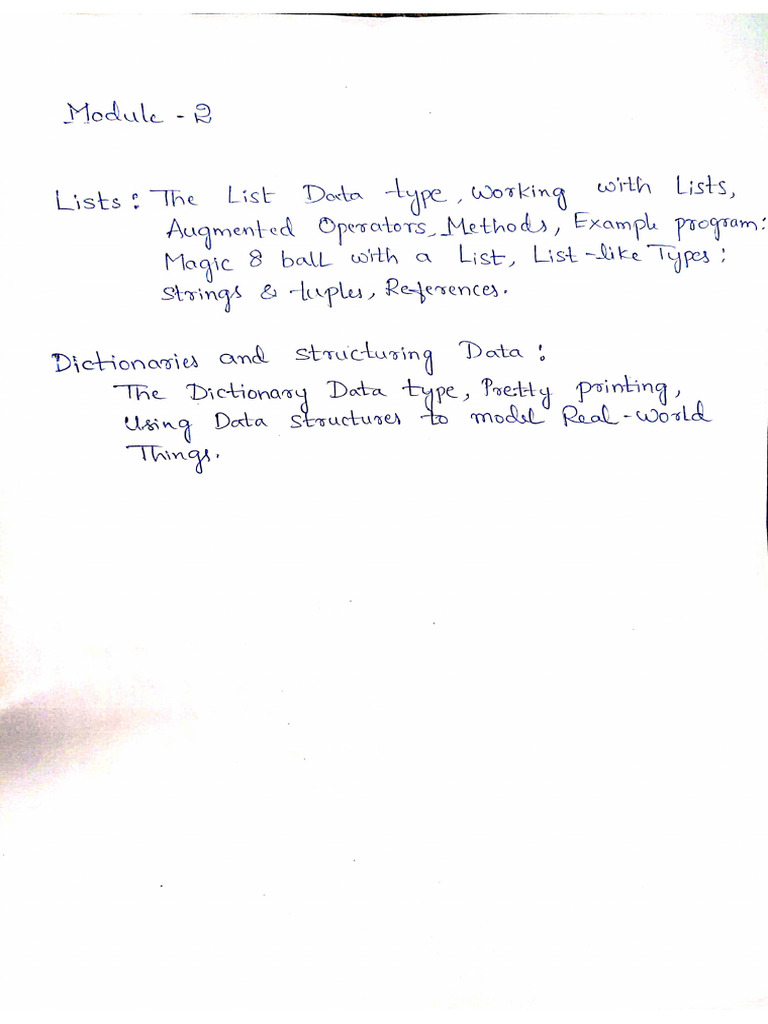 Module - 2
Lists: The List Data type, Working with Lists,
Augmented Operators, Methods, Example program:
Magic 8 ball with a List, List-like Types:
Strings & tuples, References.
Dictionaries and structuring Data:
The Dictionary Data type, Pretty printing,
Using Data structures to model Real-World
Things.